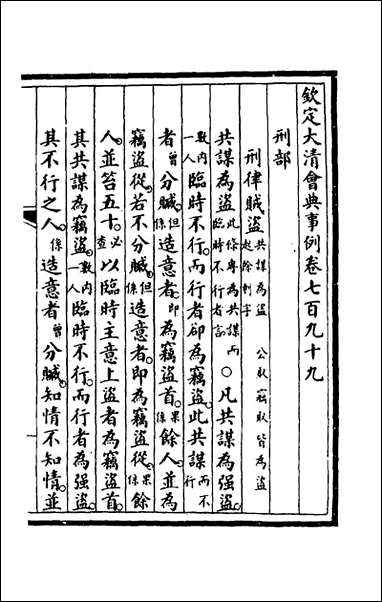 欽定大清會典事例卷七百九十九
刑部
刑律賊盜共謀為盜 公取竊取皆為盜起除刺字
共謀為盜此條專為共謀而臨時不行者言○凡共謀為強盜
數內一人臨時不行而行者卻為竊盜此共謀而不行
者曾分贓但係造意者即為竊盜首果係餘人並為
竊盜從若不分贓但係造意者即為竊盜從果係餘
人並笞五十必查以臨時主意上盜者為竊盜首
其共謀為竊盜數內一人臨時不行而行者為強盜
其不行之人係造意者曾分贓知情不知情並